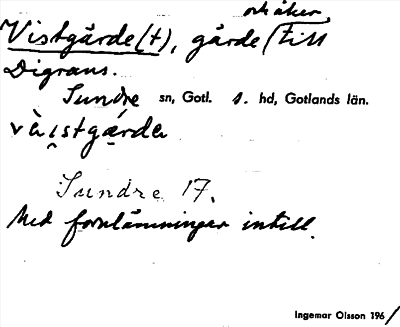 och åker
Vistgärde(t), gärde (till
Digrans.
Sundre sn, Gotl. s. hd, Gotlands län.
väistgärda
Sundre 17.
Med fornlämningar intill.
Ingemar Olsson 196/